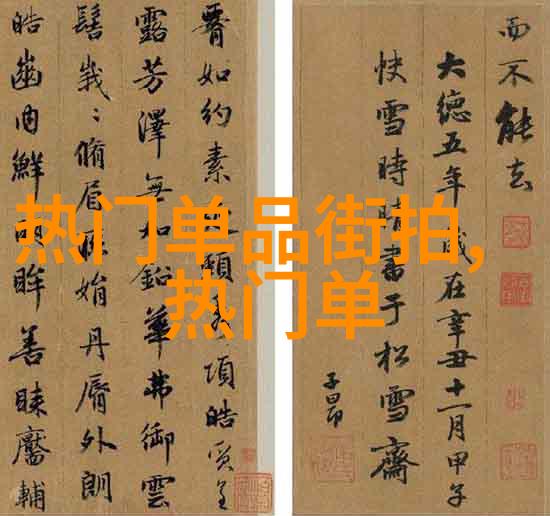 热门单品街拍,
热门单
如約素延頸秀項皓質呈
露芳澤無加鉛華弗御雲
髻峩〻脩眉聯娟丹脣外朗
皓齒内鮮明眸善睞靨輔
而不能去
大德五年歲在辛丑十一月甲子
快雪時晴書于松雪齋
子昂